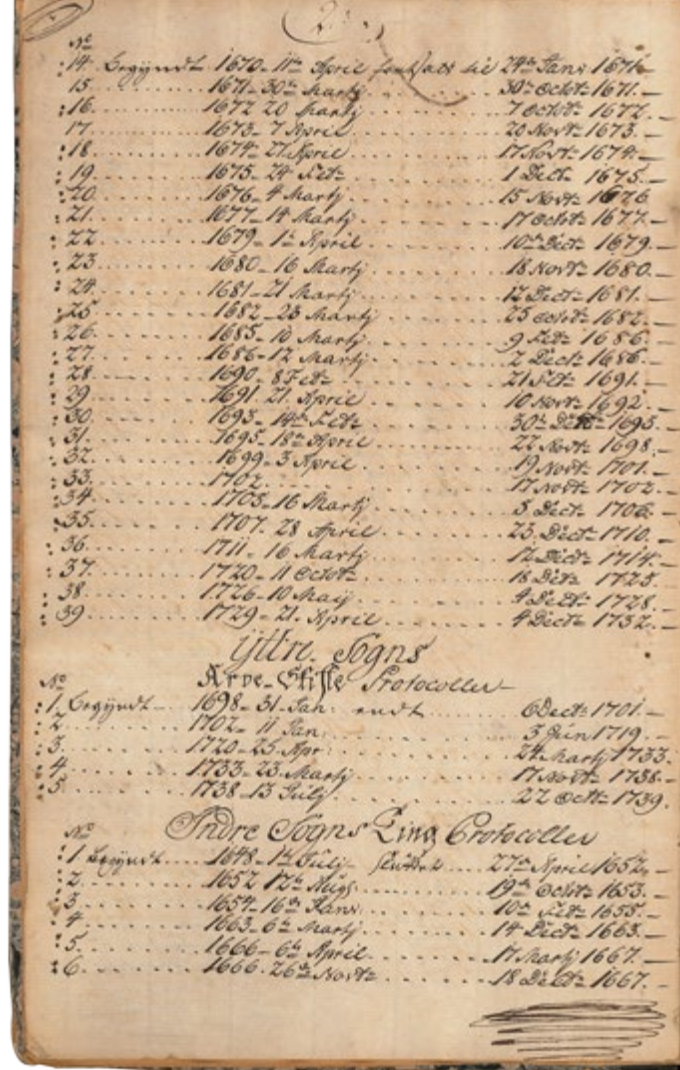 2
No
:14 Begyndt 1670-11te April til 24de Janv 1671
15 1671-30te Martÿ 30te Octobr 1671.
:16. 1672 20 Martÿ 7 Octobr 1672.
17 1673-7 Aprile 20 Novr 1673.
:18 1674-21 Aprile 17 Novr 1674.
:19. 1675-24 1 Decr 1675.
:20 1676-4 Martÿ 15 Novr 1676
:21. 1677-14 Martÿ 17 Octobr 1677.
:22 1679-1te Aprile 10de Decr 1679.
:23 1680-16 Martÿ 18 Novr 1680.
:24. 1681-21 Martÿ 12 Decr 1681.
:25 1682-23 Martÿ 25 Octobr 1682.
:26. 1685-10 Martÿ 9 1686.
:27. 1686-12 Martÿ 2 Decr 1686.
:28 1690-8 21 1691.
:29 1691 21 Aprile 10 Novr 1692.
:30. 1693-14de 30te 1695.
:31. 1695-18de Aprile 22 Novr 1698.
:32. 1699-3 Aprile 19 Novr 1701.
:33. 1702. 17 Novr 1702.
:34 1703-16 Martÿ 8 Decr 1706.
:35. 1707. 28 Aprile 23 Decr 1710.
:36. 1711-16 Martÿ 12 Decr 1714.
:37. 1720-11 Octobr 18 Decr 1725.
:38 1726-10 Maÿ 4 Decr 1728.
:39 1729-21. Aprile 4 Decr 1732.
Ÿttre Sogns
Arve-Skifte Protocoller
No
:1 Begyndt 1698-31 Jan: endt 6 Decr 1701.
:2 1702-11 Jan: 3 Juin 1719.
:3. 1720-25 Apr: 24 Martÿ 1733.
:4 1733-23 Martÿ 17 Novr 1738.
:5 1738-13 Julÿ 22 Octr 1739.
Indre Sogns Ting Protocoller
No
:1 Begyndt 1648-1te Julÿ 27de April 1652.
:2. 1652 12te Augs. 19de Octobr 1653.
:3 1654-16de Janv. 10de 1655.
:4 1663-6te Martÿ 14 Decr 1663.
:5. 1666-6te April 17 Martÿ 1667.
:6. 1666. 26de Novr 18 Decr 1667.